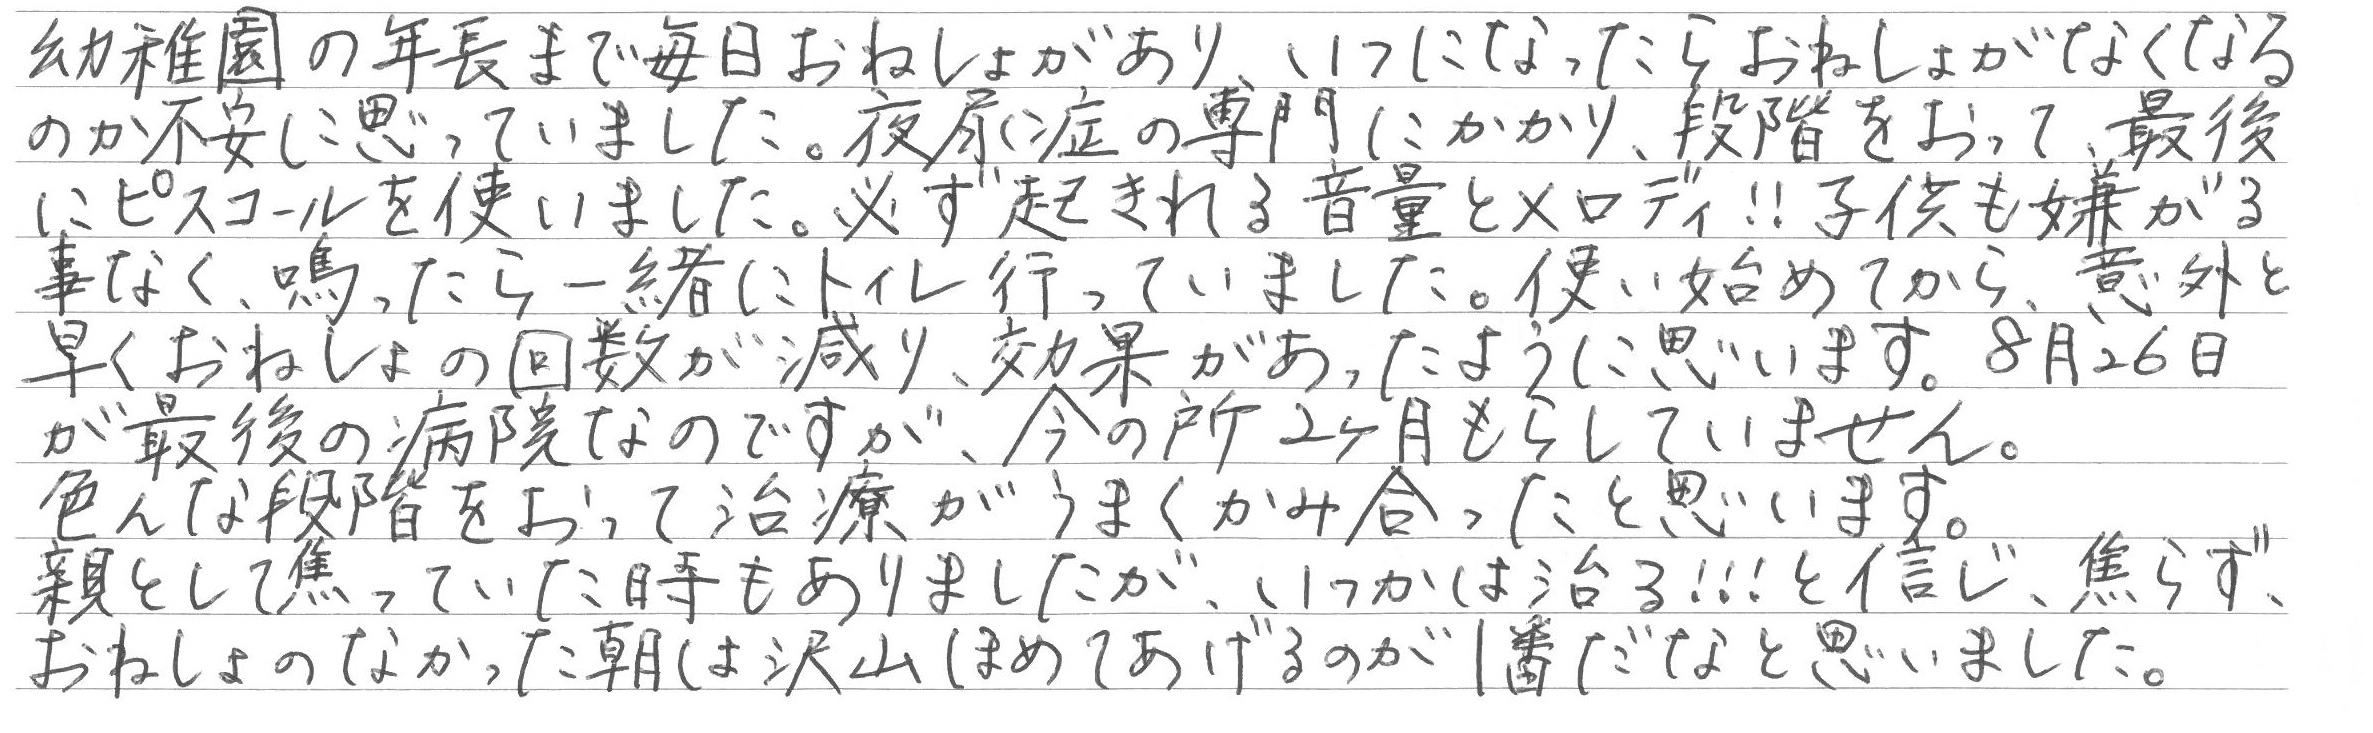 幼稚園の年長まで毎日おねしょがあり、いつになったらおねしょがなくなる
のか不安に思っていました。夜尿症の専門にかかり、段階をおって、最後
にピスコールを使いました。必ず起きれる音量とメロディ!!子供も嫌がる
事なく、鳴ったら一緒にトイレ行っていました。使い始めてから、意外と
早くおねしょの回数が減り、効果があったように思います。8月26日
が最後の病院なのですが、今の所2ヶ月もらしていません。
色んな段階をおって治療がうまくかみ合ったと思います。
親として焦っていた時もありましたが、いつかは治る!!!と信じ、焦らず、
おねしょのなかった朝は沢山ほめてあげるのが1番だなと思いました。